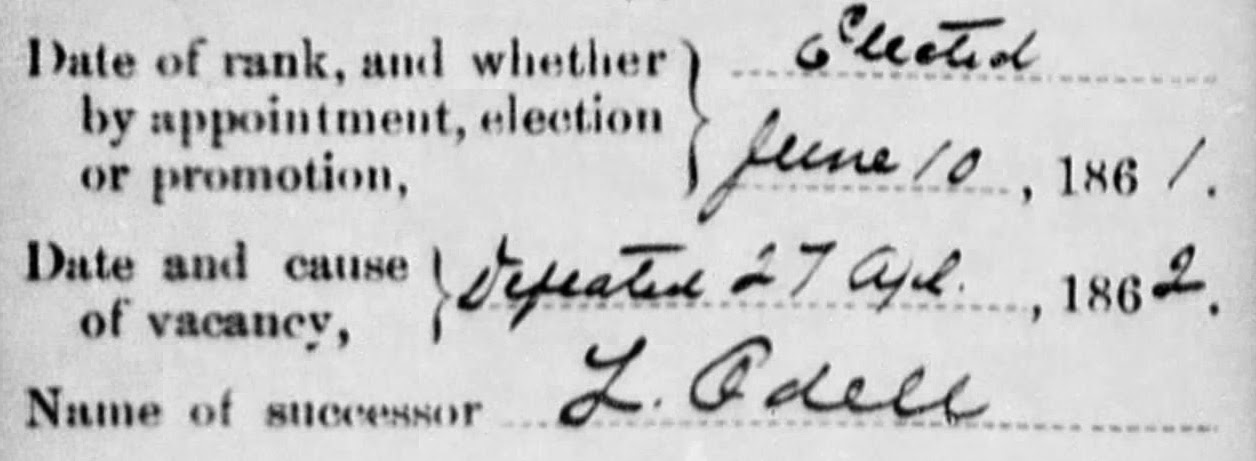 Date of rank, and whether } Elected
by appointment, election
or promotion, June 10, 1861.
Date and cause } Defeated 27 Apl., 1862.
of vacancy,
Name of successor L. Odell